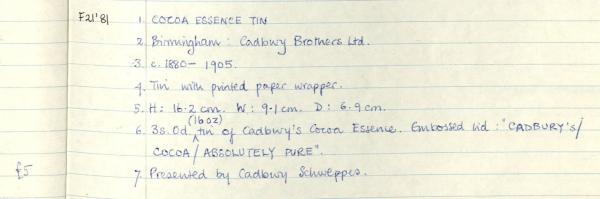 F21'81 1. COCOA ESSENCE TIN
2. Birmingham: Cadbury Brothers Ltd.
3. c. 1880 - 1905.
4. Tin with printed paper wrapper.
5. H: 16.2 cm. W: 9.1 cm. D: 6.9 cm.
6. 3s. 0d. (16oz) tin of Cadbury's Cocoa Essence. Embossed lid: "CADBURY'S/
COCOA/ABSOLUTELY PURE".
£5 7. Presented by Cadbury Schweppes.